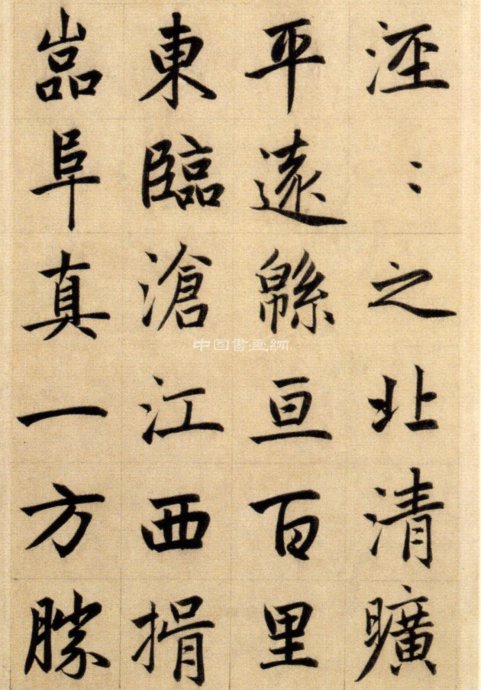 涇〻之北清曠
平遠緜亘百里
東臨滄江西揖
嵓阜真一方勝
中国書画網